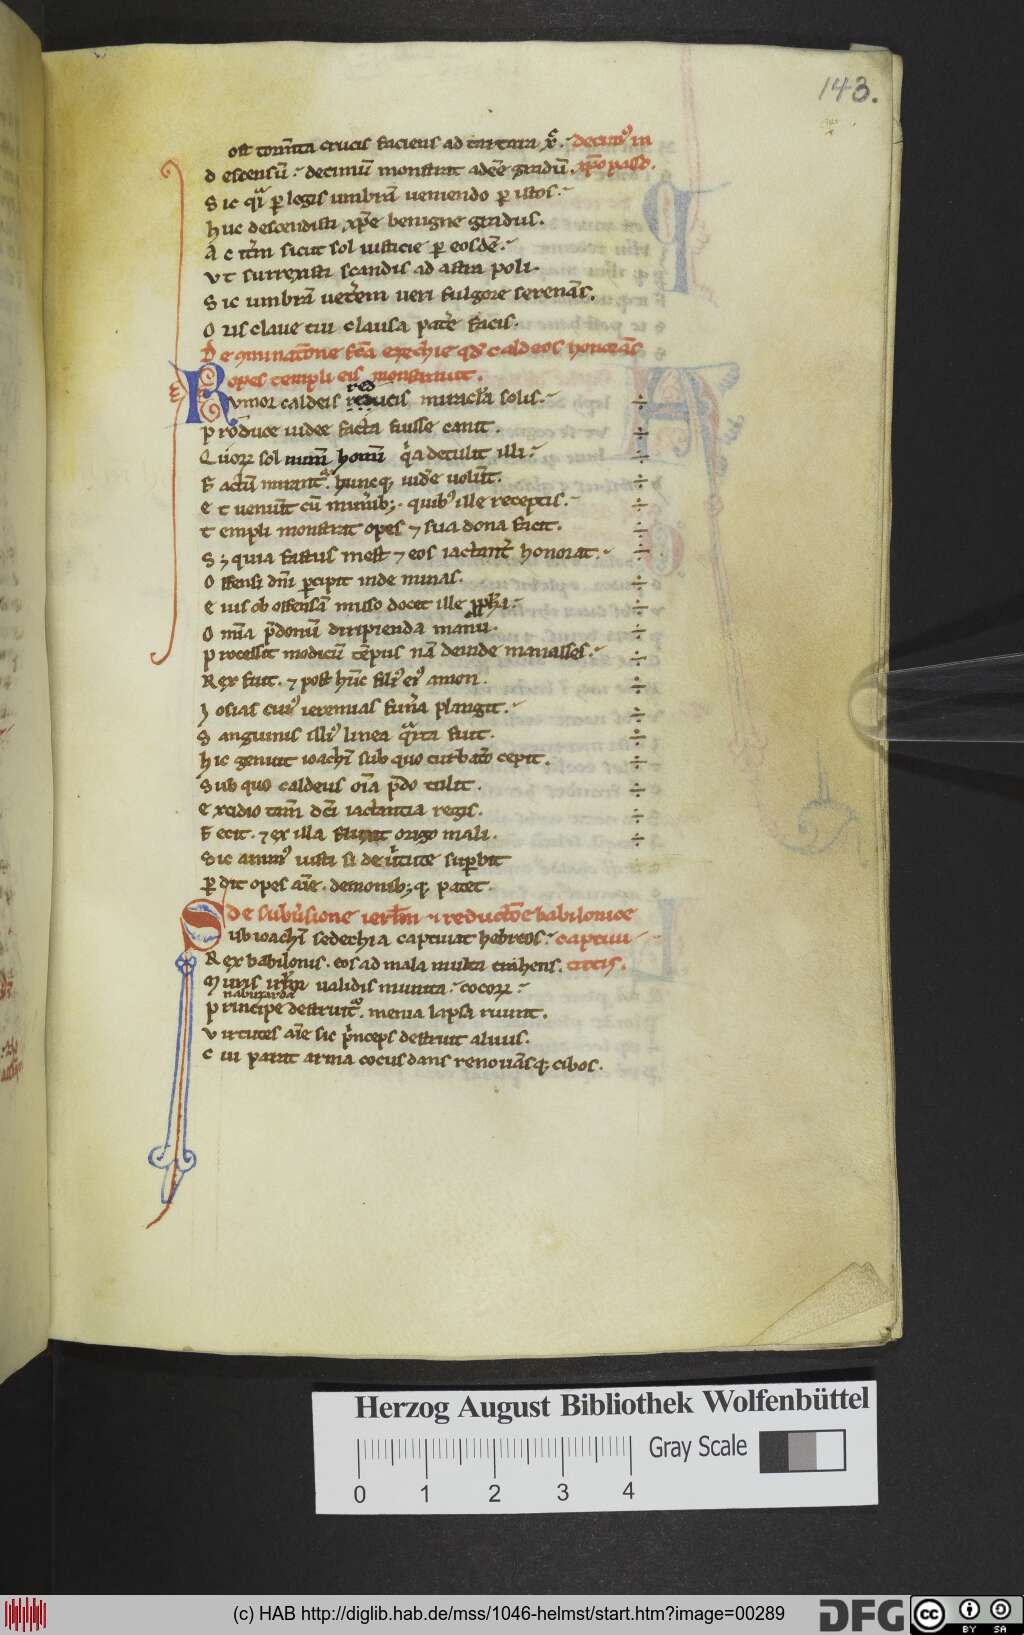 143.
ost torm̅ta crucis faciens ad tartara xp̅c. decim᷒ in
descensu̅. decimu̅ monstrat adee̅ gradu̅. xp̅o pass᷒.
Sic qͣ ꝑ legis umbra̅ ueniendo ꝑ istos.
Huc descendisti xp̅e benigne gradus.
Ac it̅m sicut sol iusticie ꝑ eosde̅.
Vt surrexisti scandis ad astra poli.
Sic umbra̅ uet̅em ueri fulgore serena̅s.
Oris claue tui clausa pat̅e facis.
De ꝯminac̅one fc̅a ezech̅ie qd̅ caldeos honora̅s
opes templi eis monstrauit.
Rvmor caldeis reducis miracl̅a solis.
red
Produce uidee facta fuisse canit.
Quorꝝ sol num̅ honu̅ qͥa detulit illi.
Factu̅ mirant᷑. huncqꝫ uide̅ uolu̅t.
Et ueniu̅t cu̅ mun̅ibꝫ. quibꝰ ille receptis.
Templi monstrat opes ⁊ sua dona facit.
Sꝫ quia fastus inest ⁊ eos iactant̅ honorat.
Offensi dn̅i ꝑcipit inde minas.
Eius ob offensa̅ misso docet ille ꝓph̅a.
Omnia p̅donu̅ diripienda manu.
Processit modicu̅ te̅pus na̅ deinde manasses.
Rex fuit. ⁊ post hu̅c filiꝰ eiꝰ amon.
Iosias cuiꝰ ieremias fun̅a plangit.
Sanguinis illiꝰ linea qͣrta fuit.
Hic genuit ioachi̅ sub quo turbat̅o cepit.
Sub quo caldeus oi̅a p̅do tulit.
Excidio tam̅ dc̅i iactantia regis.
Fecit. ⁊ ex illa origo mali.
Sic animꝰ iusti si de u̅tute supbit
ꝑdit opes ai̅e. demonibꝫqꝫ patet.
De subu̅sione ierl̅m ⁊ reduct̅oe babilonice
Sub ioachi̅ sedechia captiuat hebreos. captiui
Rex babilonis. eos ad mala multa trahens. tatis.
Muris irl̅m ualidis munita. cocorꝝ.
nabuzarda
Principe destruit᷑. menia lapsa ruunt.
Virtutes ai̅e sic pͥnceps destruit aluus.
Cui parat arma cocus dans renoua̅sqꝫ cibos.
Herzog August Bibliothek Wolfenbüttel
Gray Scale
0 1 2 3 4
(c) HAB http://diglib.hab.de/mss/1046-helmst/start.htm?image=00289
DFG
cc BY SA